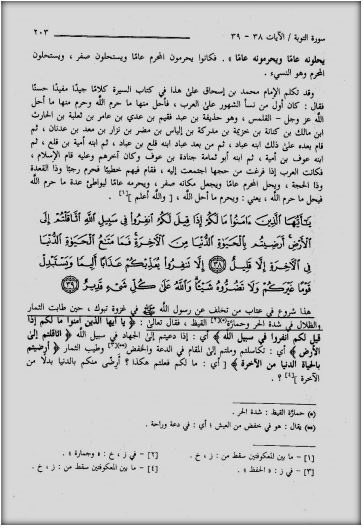 سورة التوبة / الآيات ٣٨ - ٣٩ ٢٠٣
يحلونه عامًا ويحرمونه عامًا » . فكانوا يحرمون المحرم عامًا ويستحلون صفر ، ويستحلون
المحرم وهو النسيء .
وقد تكلم الإمام محمد بن إسحاق على هذا في كتاب السيرة كلامًا جيدًا مفيدًا حسنًا
فقال : كان أول من نسأ الشهور على العرب ، فأحل منها ما حرم الله وحرم منها ما أحل
الله عز وجل – القلمس ، وهو حذيفة بن عبد فقيم بن عدي بن عامر بن ثعلبة بن الحارث
ابن مالك بن كنانة بن خزيمة بن مدركة بن إلياس بن مضر بن نزار بن معد بن عدنان ، ثم
قام بعده على ذلك ابنه عباد ، ثم من بعد عباد ابنه قلع بن عباد ، ثم ابنه أمية بن قلع ، ثم
ابنه عوف بن أمية ، ثم ابنه أبو ثمامة جنادة بن عوف وكان آخرهم وعليه قام الإسلام ،
فكانت العرب إذا فرغت من حجها اجتمعت إليه ، فقام فيهم خطيبًا فحرم رجبًا وذا القعدة
وذا الحجة ، ويحل المحرم عامًا ويجعل مكانه صفر ، ويحرمه عامًا ليواطئ عدة ما حرم الله
فيحل ما حرم الله ، يعني : ويحرم ما أحل الله ، [ والله أعلم ][١] .
يَٰٓأَيُّهَا ٱلَّذِينَ ءَامَنُوا۟ مَا لَكُمْ إِذَا قِيلَ لَكُمُ ٱنفِرُوا۟ فِى سَبِيلِ ٱللَّهِ ٱثَّاقَلْتُمْ إِلَى
ٱلْأَرْضِ أَرَضِيتُم بِٱلْحَيَوٰةِ ٱلدُّنْيَا مِنَ ٱلْءَاخِرَةِ فَمَا مَتَٰعُ ٱلْحَيَوٰةِ ٱلدُّنْيَا
فِى ٱلْءَاخِرَةِ إِلَّا قَلِيلٌ ٣٨ إِلَّا تَنفِرُوا۟ يُعَذِّبْكُمْ عَذَابًا أَلِيمًا وَيَسْتَبْدِلْ
قَوْمًا غَيْرَكُمْ وَلَا تَضُرُّوهُ شَيْـًٔا وَٱللَّهُ عَلَىٰ كُلِّ شَىْءٍ قَدِيرٌ ٣٩
هذا شروع في عتاب من تخلف عن رسول الله ﷺ في غزوة تبوك ، حين طابت الثمار
والظلال في شدة الحر وحمارَّة(*)[٢] القيظ ، فقال تعالى : ﴿ يا أيها الذين آمنوا ما لكم إذا
قيل لكم انفروا في سبيل الله ﴾ أي : إذا دعيتم إلى الجهاد في سبيل الله ﴿ اثاقلتم إلى
الأرض ﴾ أي : تكاسلتم وملتم إلى المقام في الدعة والخفض(**)[٣] وطيب الثمار ﴿ أرضيتم
بالحياة الدنيا من الآخرة ﴾ [ أي : ما لكم فعلتم هكذا ؟ أرضًى منكم بالدنيا بدلًا من
الآخرة ][٤] ؟ .
(*) حمارَّة القيظ : شدة الحر .
(**) يقال : هو في خفض من العيش ؛ أي : في دعة وراحة .
[١] – ما بين المعكوفتين سقط من : ز ، خ . [٢] – في ز ، خ : « وجمارة » .
[٣] – في ز : « الحفظ » . [٤] – ما بين المعكوفتين سقط من : ز ، خ .